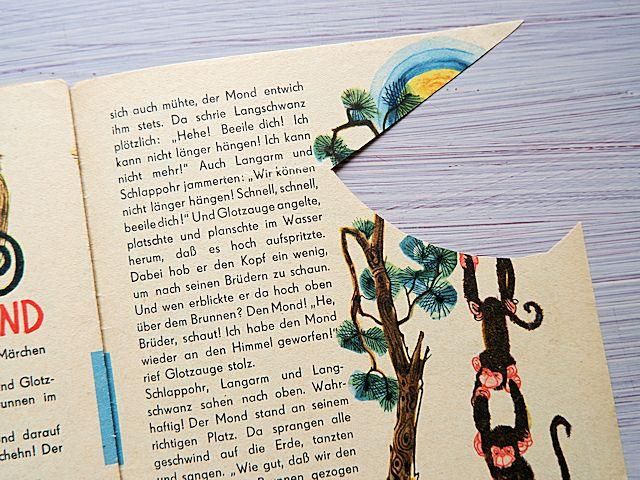 ND
Märchen
nd Glotz-
unnen im
nd darauf
chehn! Der
sich auch mühte, der Mond entwich
ihm stets. Da schrie Langschwanz
plötzlich: „Hehe! Beeile dich! Ich
kann nicht länger hängen! Ich kann
nicht mehr!“ Auch Langarm und
Schlappohr jammerten: „Wir können
nicht länger hängen! Schnell, schnell,
beeile dich!“ Und Glotzauge angelte,
platschte und planschte im Wasser
herum, daß es hoch aufspritzte.
Dabei hob er den Kopf ein wenig,
um nach seinen Brüdern zu schaun.
Und wen erblickte er da hoch oben
über dem Brunnen? Den Mond! „He,
Brüder, schaut! Ich habe den Mond
wieder an den Himmel geworfen!“
rief Glotzauge stolz.
Schlappohr, Langarm und Lang-
schwanz sahen nach oben. Wahr-
haftig! Der Mond stand an seinem
richtigen Platz. Da sprangen alle
geschwind auf die Erde, tanzten
und sangen. „Wie gut, daß wir den
Brunnen gezogen